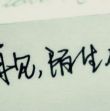 再见,陌生